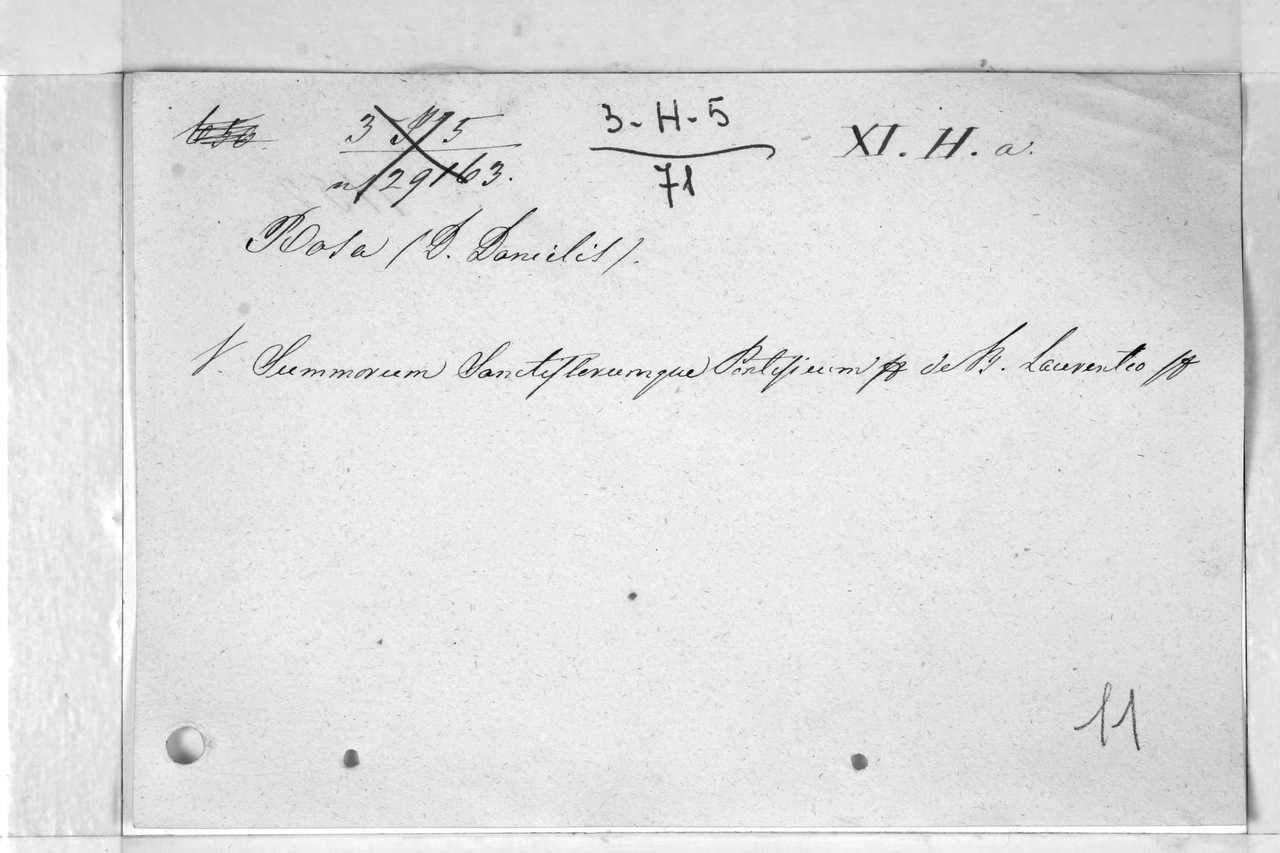 3-H-5
71
XI. H. a.
Rosa (D. Danielis).
V. Summorum Sanctissimorumque Pontificum de B. Laurentio
11